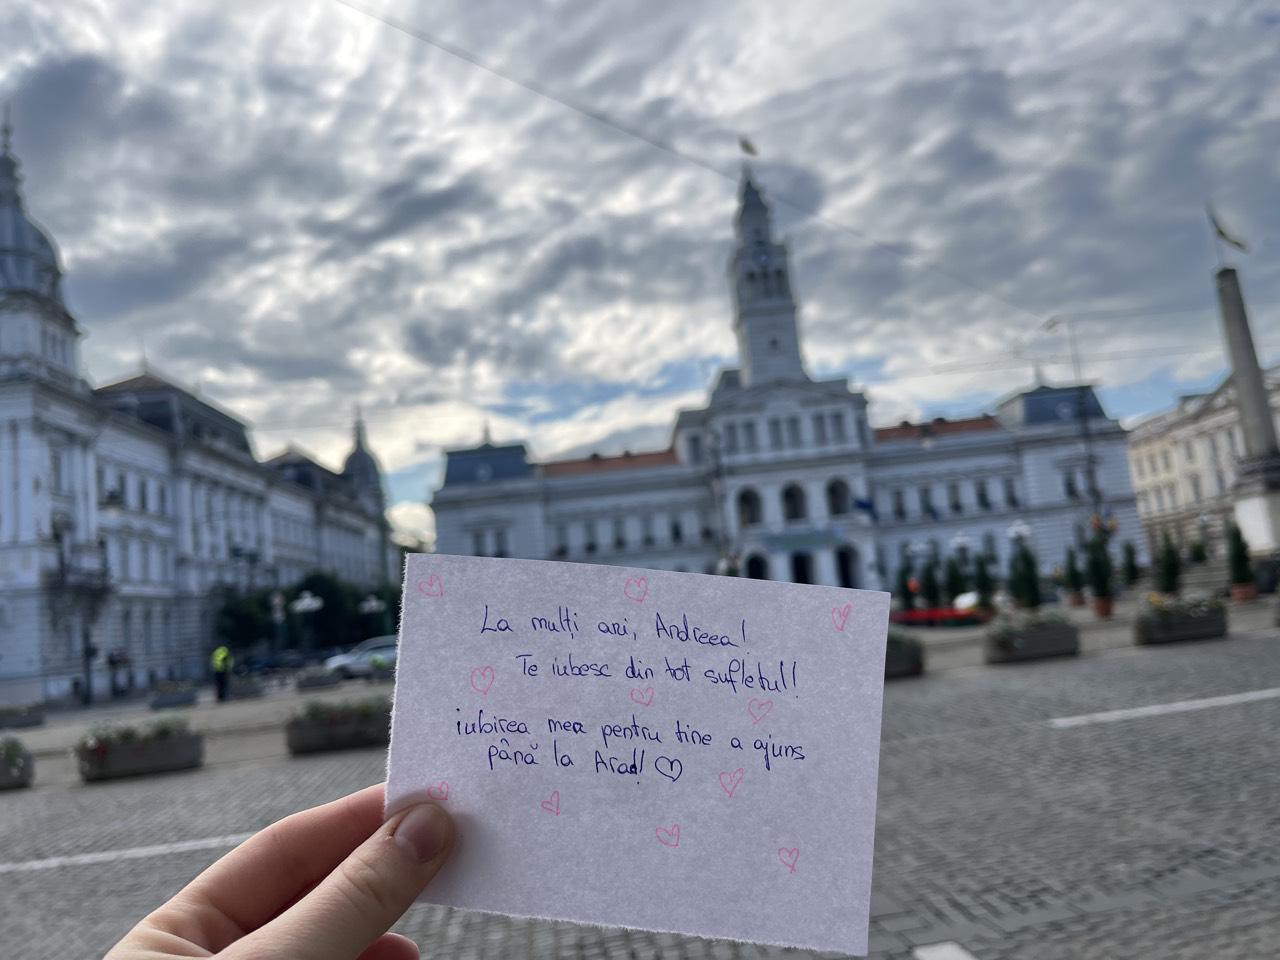 La mulți ani, Andreea!
Te iubesc din tot sufletul!
iubirea mea pentru tine a ajuns
până la Arad! ♡